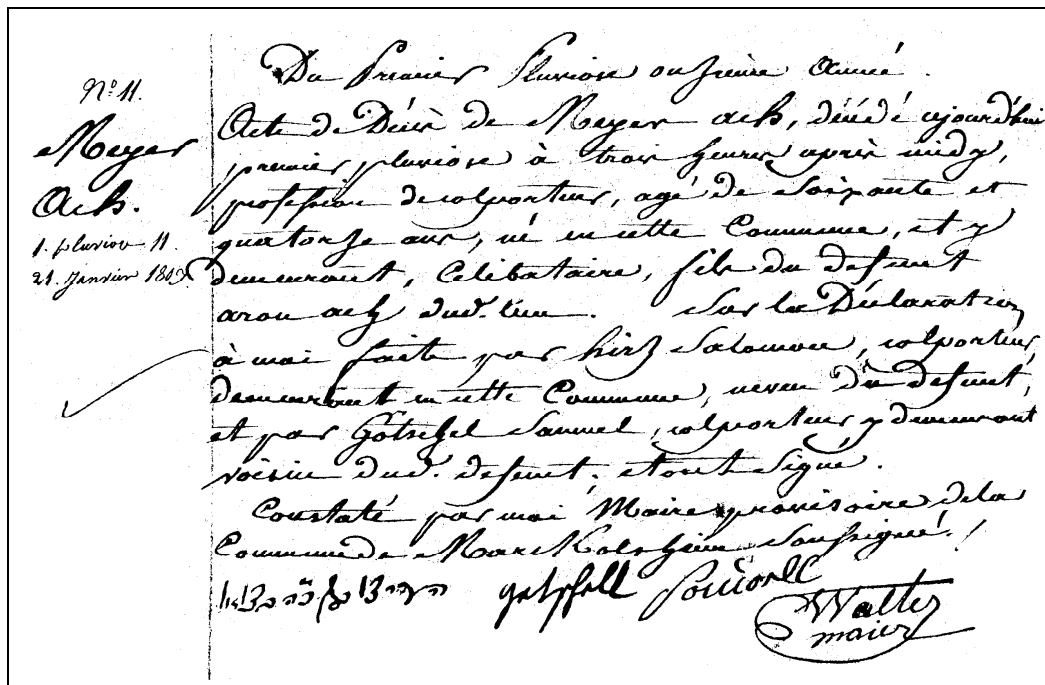 Nº 11.
Meyer
Ach.
1. pluviose 11.
21. Janvier 1803
Du Premier Pluviose onzieme Année.
Acte de Décès de Meyer ach, décédé ajourd'hui
premier pluviose à trois heures après midy,
profession de colporteur, agé de Soixante et
quatorze ans, né en cette Commune, et y
demeurant, Celibataire, fils du defunt
aron ach dud. lieu. Sur la Déclaration
à moi faite par hirz Salomon, colporteur,
demeurant en cette Commune, neveu du defunt,
et par Götschel Samuel, colporteur y demeurant
voisin dud. defunt; et ont Signé.
Constaté par moi Maire provisoire de la
Commune de Marckolsheim Soussigné.
getschell
Walter
maier